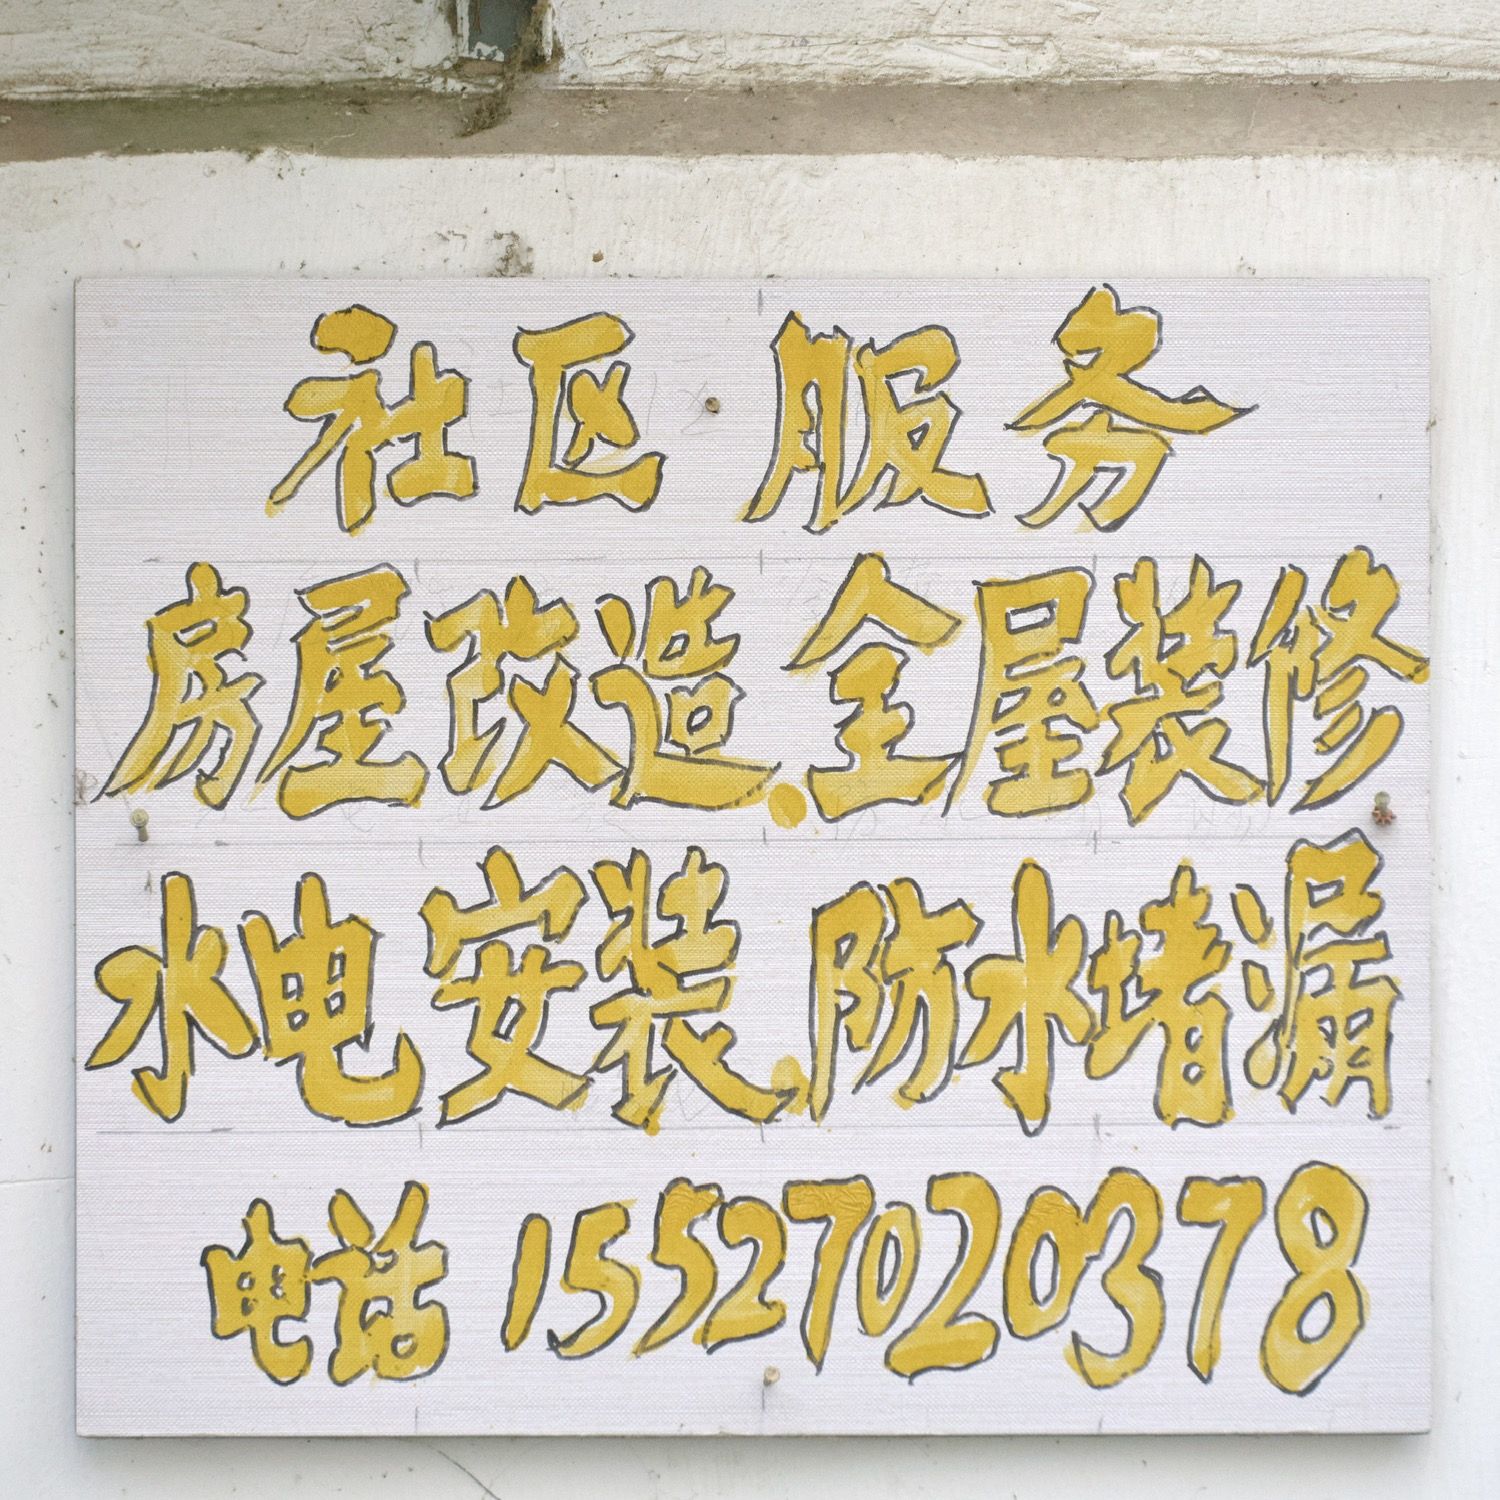 社区服务
房屋改造.全屋装修
水电安装.防水堵漏
电话 15527020378